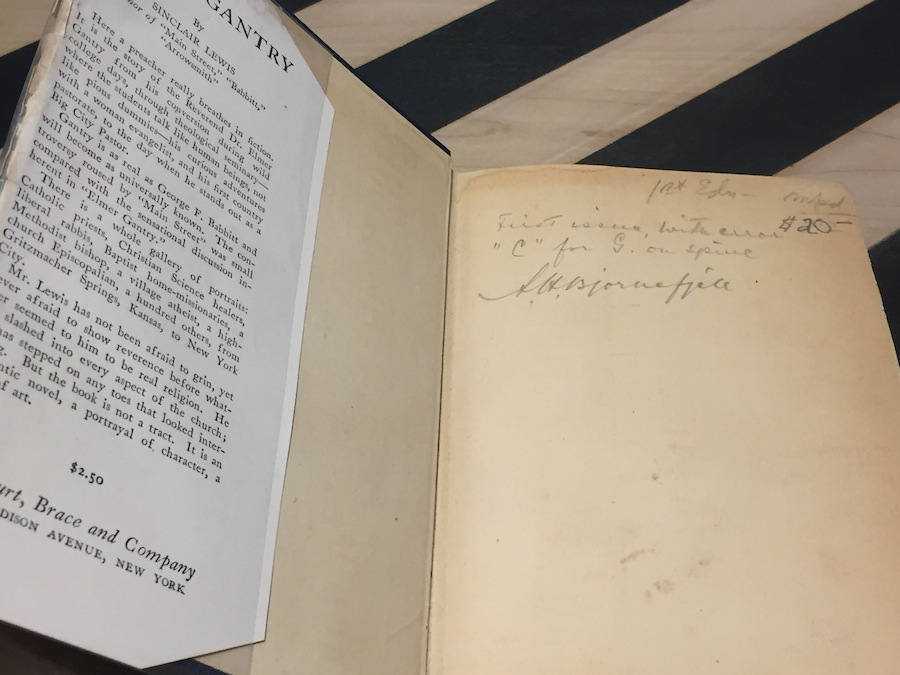 GANTRY
By
SINCLAIR LEWIS
of "Main Street," "Babbitt,"
"Arrowsmith"
Here a preacher really breathes in fiction.
It is the story of the Reverend Dr. Elmer
Gantry from his conversion during wild
college days, through theological seminary—
where the students talk like human beings, not
like pious dummies—his curious adventures
with a woman evangelist, and his first country
pastorate, to the day when he stands out as a
Big City Pastor.
Gantry is as real as George F. Babbitt and
will become as universally known. The con-
troversy roused by "Main Street" was small
compared with the sensational discussion in-
herent in "Elmer Gantry."
There is a whole gallery of portraits:
Catholic priests, Christian Science healers,
liberal rabbis, Baptist home-missionaries, a
Methodist bishop, a village atheist, a high-
church Episcopalian, a hundred others, from
Gritzmacher Springs, Kansas, to New York
City.
Mr. Lewis has not been afraid to grin, yet
ever afraid to show reverence before what-
er seemed to him to be real religion. He
slashed into every aspect of the church;
has stepped on any toes that looked inter-
g. But the book is not a tract. It is an
ntic novel, a portrayal of character, a
f art.
$2.50
urt, Brace and Company
DISON AVENUE, NEW YORK
1st Edn—
$20—
First issue, with error
"C" for G. on spine
A.H. Bjornefjell